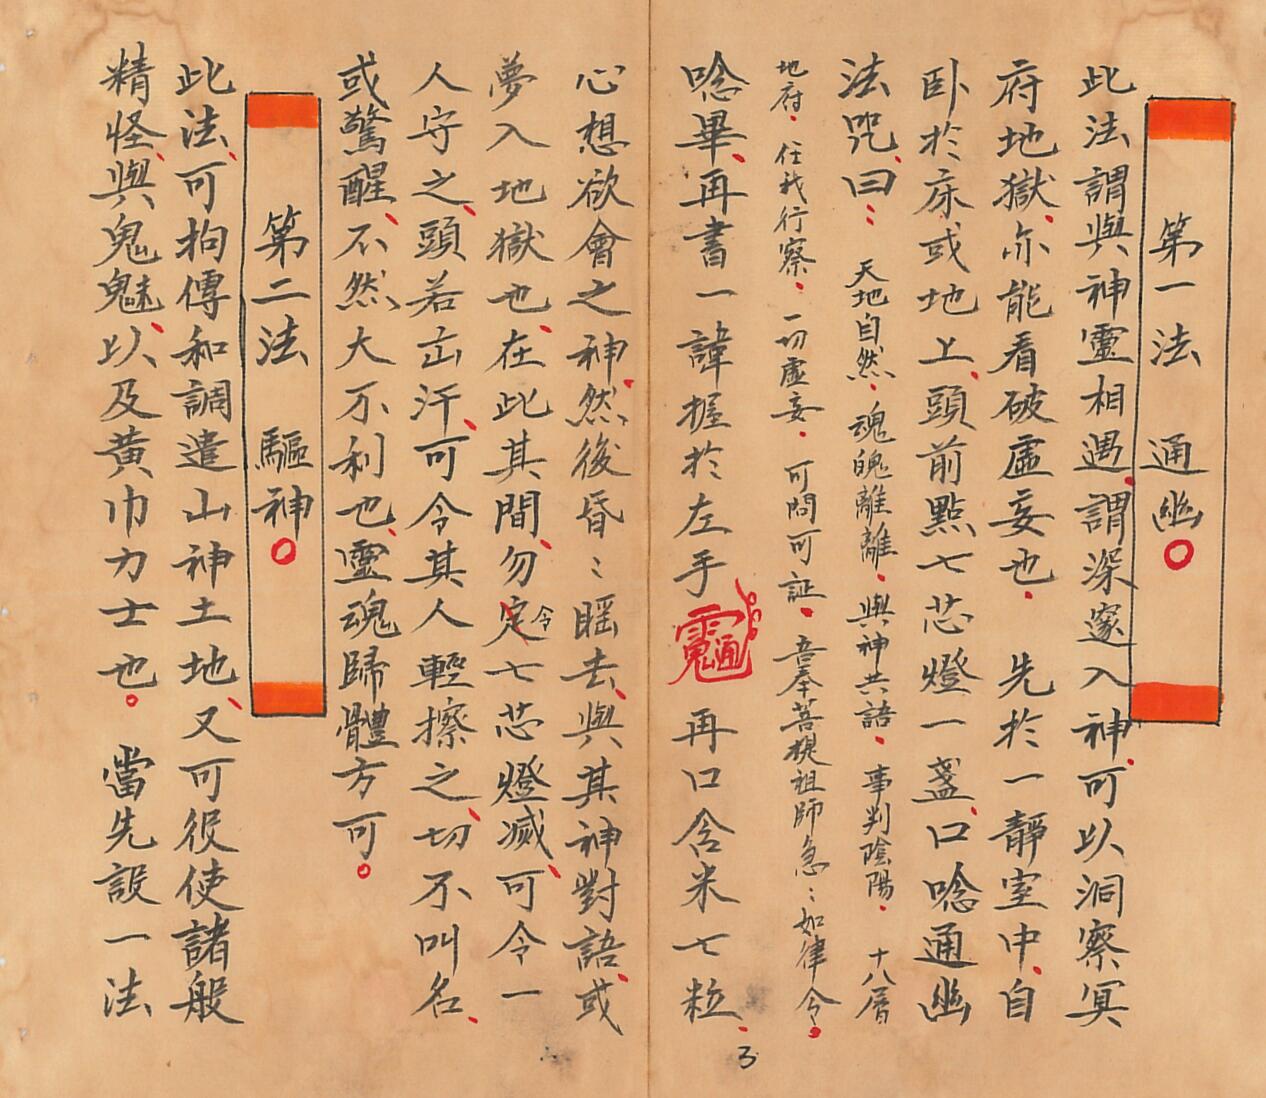 第一法 通幽
此法謂與神靈相遇、謂深邃入神、可以洞察冥
府地獄、亦能看破虛妄也、先於一靜室中、自
卧於床或地上、頭前點七芯燈一盞、口唸通幽
法咒、曰：天地自然、魂魄離離、與神共語、事判陰陽、十八層
地府、任我行察、一切虛妄、可問可証、吾奉菩提祖師急：如律令。
唸畢、再書一諱握於左手 再口含米七粒、
心想欲會之神、然後昏：眠去、與其神對語、或
夢入地獄也、在此其間、勿令七芯燈滅、可令一
人守之、頭若出汗、可令其人輕擦之、切不叫名、
或驚醒、不然、大不利也、靈魂歸體方可。
第二法 驅神
此法、可拘傳和調遣山神土地、又可役使諸般
精怪、與鬼魅、以及黃巾力士也。當先設一法
3